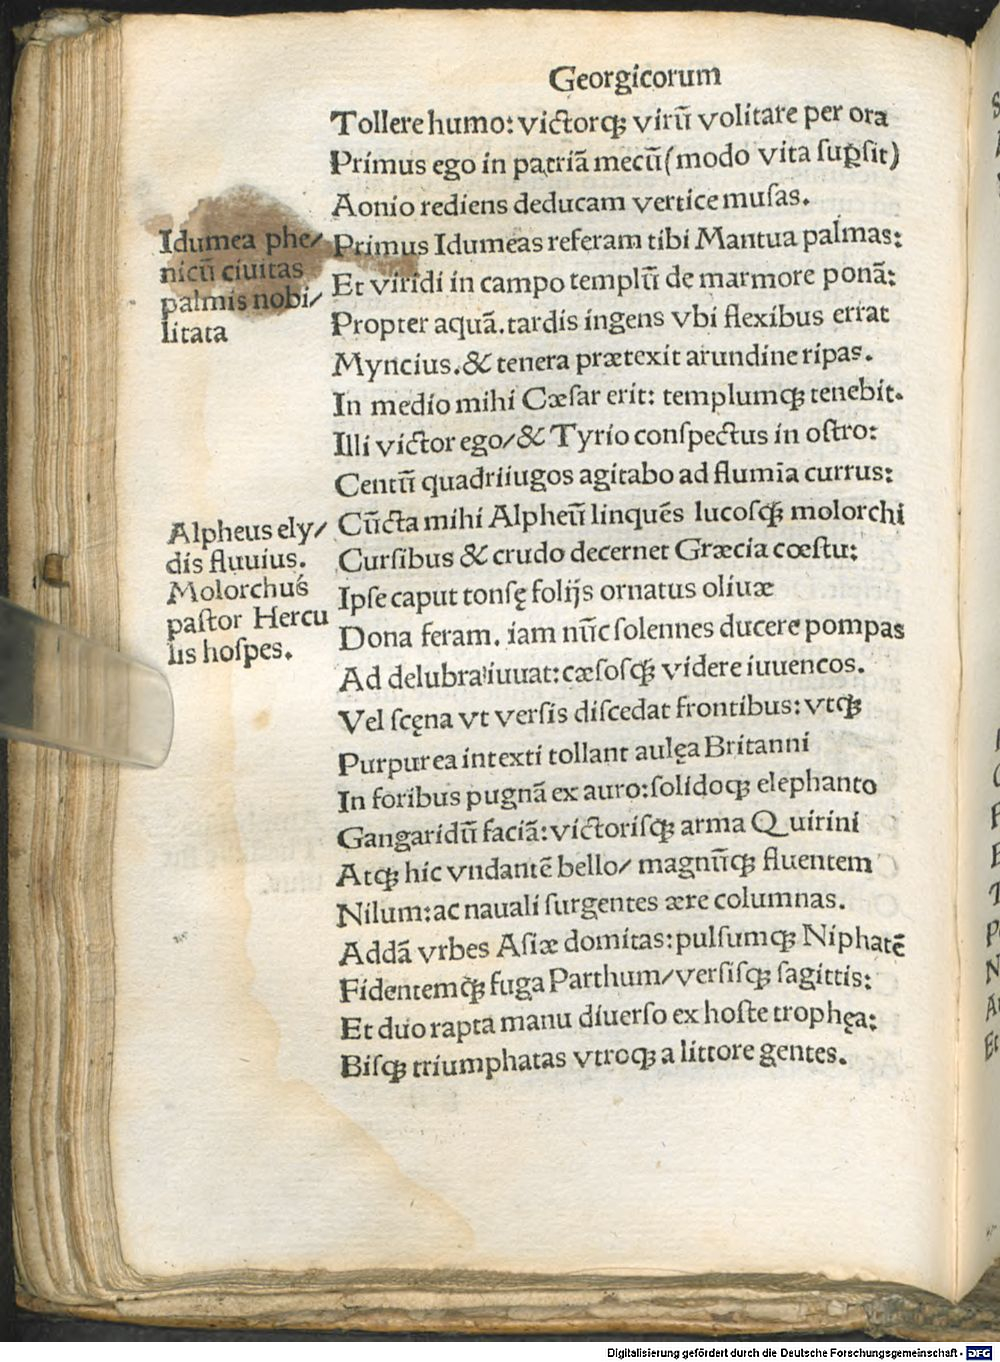 Georgicorum
Tollere humo: victorqꝫ virū volitare per ora
Primus ego in patriā mecū (modo vita suꝑsit)
Aonio rediens deducam vertice musas.
Primus Idumeas referam tibi Mantua palmas:
Et viridi in campo templū de marmore ponā:
Propter aquā. tardis ingens vbi flexibus errat
Myncius. & tenera prætexit arundine ripas.
In medio mihi Cæsar erit: templumqꝫ tenebit.
Illi victor ego/ & Tyrio conspectus in ostro:
Centū quadriiugos agitabo ad flumīa currus:
Cūcta mihi Alpheū linquēs lucosqꝫ molorchi
Cursibus & crudo decernet Græcia cœstu:
Ipse caput tonsę folijs ornatus oliuæ
Dona feram. iam nūc solennes ducere pompas
Ad delubra iuuat: cæsosqꝫ videre iuuencos.
Vel scęna vt versis discedat frontibus: vtqꝫ
Purpurea intexti tollant aulęa Britanni
In foribus pugnā ex auro: solidoqꝫ elephanto
Gangaridū faciā: victorisqꝫ arma Quirini
Atqꝫ hic vndantē bello/ magnūqꝫ fluentem
Nilum: ac nauali surgentes ære columnas.
Addā vrbes Asiæ domitas: pulsumqꝫ Niphatē
Fidentemqꝫ fuga Parthum/ versisqꝫ sagittis:
Et duo rapta manu diuerso ex hoste trophęa:
Bisqꝫ triumphatas vtroqꝫ a littore gentes.
Idumea phe/
nicū ciuitas
palmis nobi/
litata
Alpheus ely/
dis fluuius.
Molorchus
pastor Hercu
lis hospes.
Digitalisierung gefördert durch die Deutsche Forschungsgemeinschaft - DFG